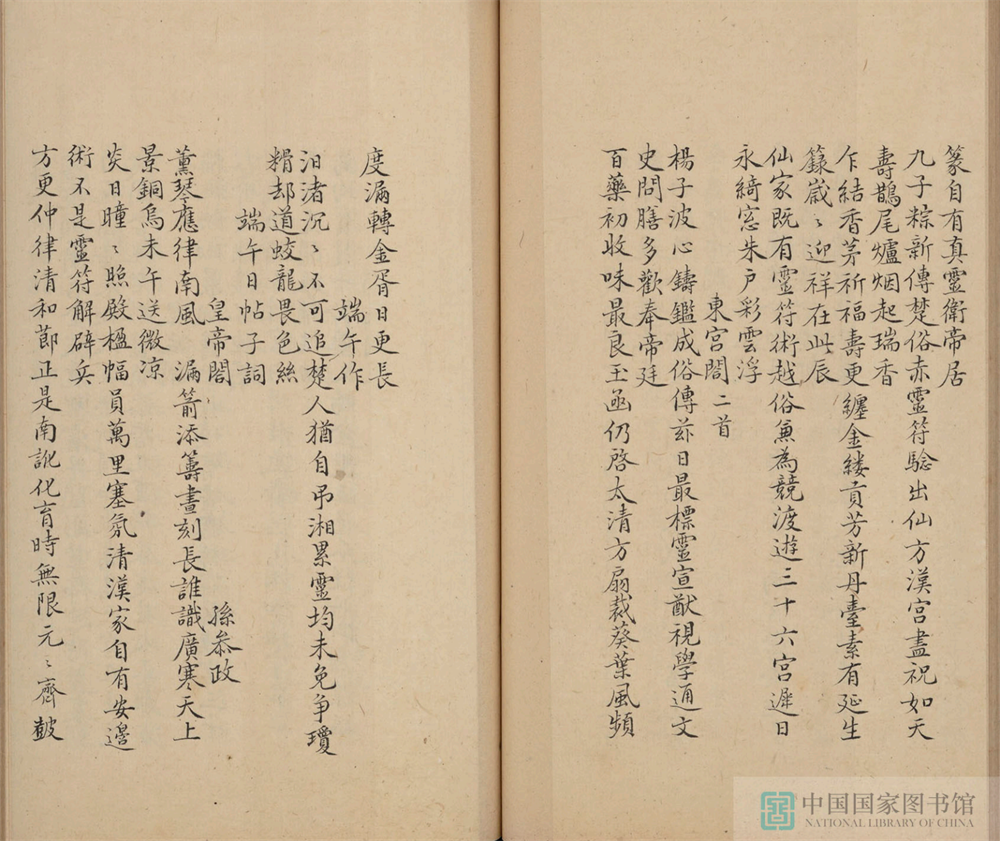 篆自有真靈衛帝居
九子粽新傳楚俗赤靈符驗出仙方漢宮盡祝如天
壽鵲尾爐烟起瑞香
乍結香茅祈福壽更纏金縷貢芳新丹臺素有延生
籙歲〻迎祥在此辰
仙家既有靈符術越俗無為競渡遊三十六宮遲日
永綺窓朱戶彩雲浮
東宮閣二首
楊子波心鑄鑑成俗傳茲日最標靈宣猷視學通文
史問膳多歡奉帝廷
百藥初收味最良玉函仍啓太清方扇裁葵葉風頻
度漏轉金胥日更長
端午作
汨渚沉〻不可追楚人猶自弔湘纍靈均未免爭瓊
糈却道蛟龍畏色絲
端午日帖子詞
皇帝閣 孫叅政
薰琴應律南風 漏箭添籌晝刻長誰識廣寒天上
景銅烏未午送微凉
炎日曈〻照殿楹幅員萬里塞氛清漢家自有安邊
術不是靈符解辟兵
方更仲律清和節正是南訛化育時無限元〻齊鼓
中国国家图书馆
NATIONAL LIBRARY OF CHINA